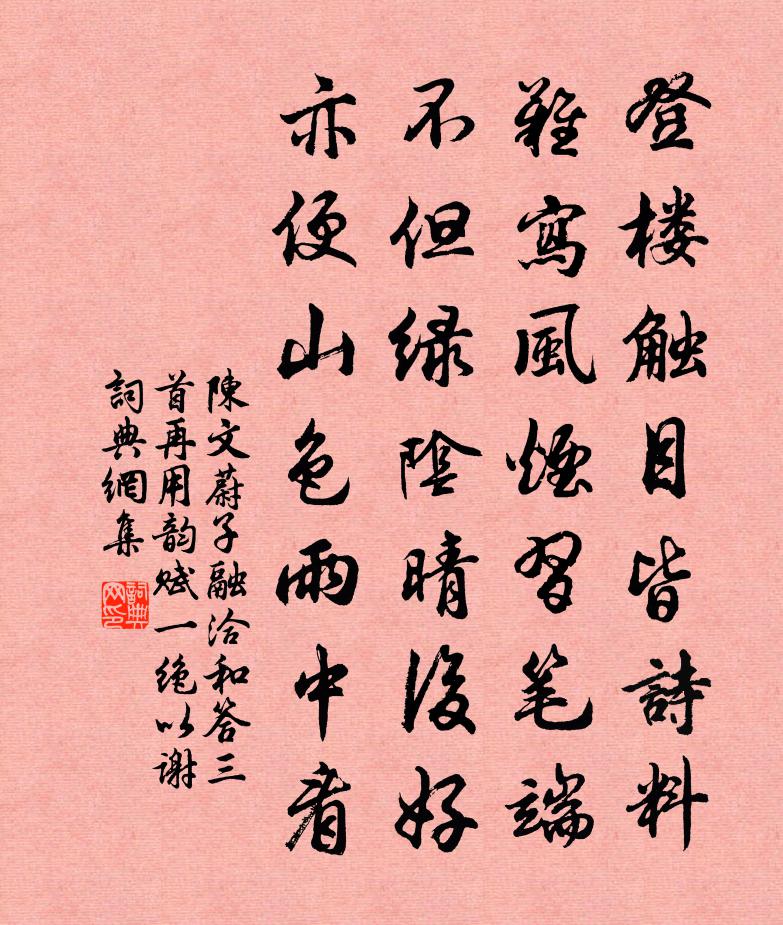 登楼触目皆詩料
難寫風煙習笔端
不但緑陰晴後好
亦便山色雨中看
陳文蔚子融洽和答三
首再用韵赋一绝以谢
詞典網集
詞典网印